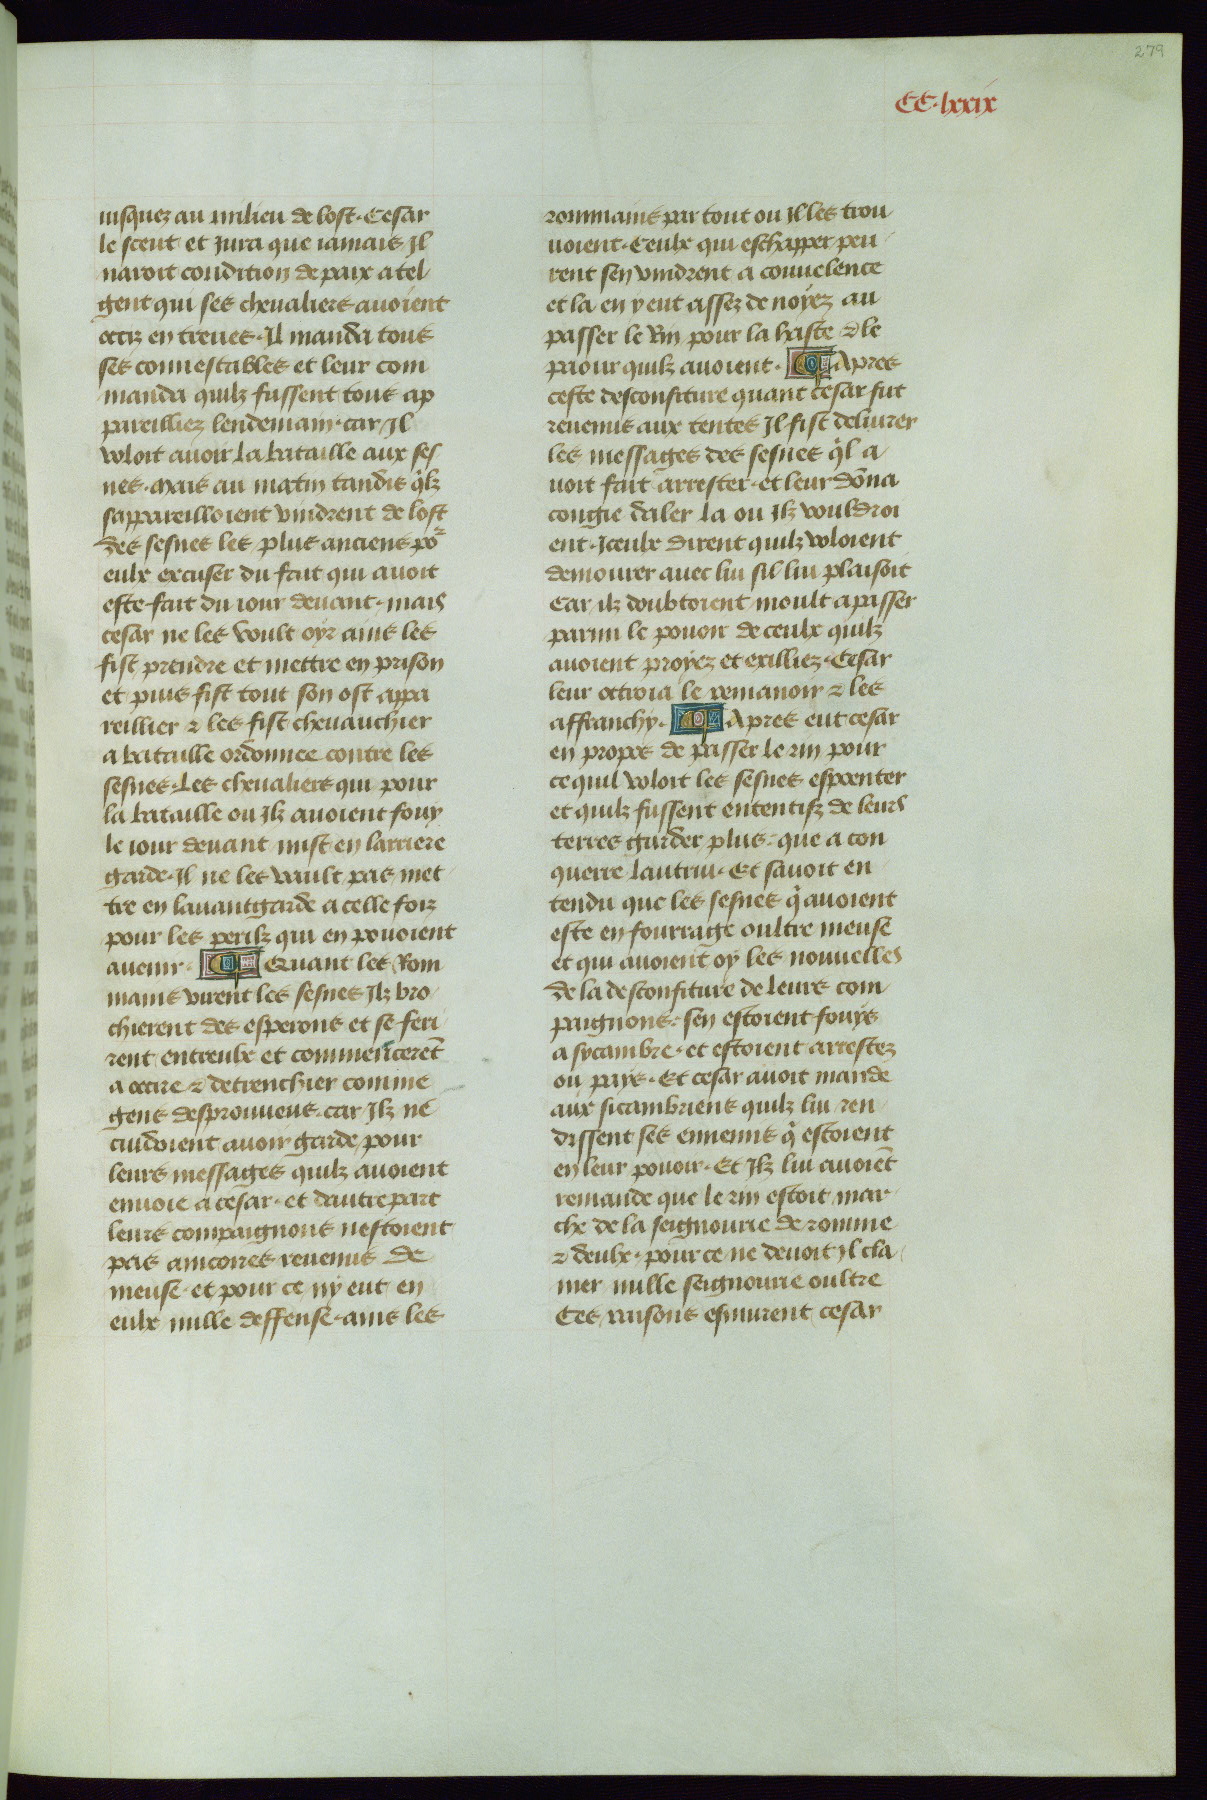 279
CC·lxxix
iusquez au milieu de lost· Cesar
le sceut et Jura que iamais Jl
naroit condition de paix a tel
gent qui ses cheualiers auoient
occiz en treues· Il manda tous
ses connestables et leur com
manda quilz fussent tous ap
pareilliez lendemain· car Jl
voloit auoir la bataille aux ses
nes· mais au matin tandis q̃lz
sappareilloient vindrent de lost
des sesnes les plus anciens po᷑
eulx excuser du fait qui auoit
este fait du iour deuant· mais
cesar ne les voult oyr ains les
fist prendre et mettre en prison
et puis fist tout son ost appa
reillier ⁊ les fist cheuauchier
a bataille ordonnee contre les
sesnes· Les cheualiers qui pour
la bataille ou Jlz auoient fouy
le iour deuant mist en larriere
garde· Il ne les vault pas met
tre en lauantgarde a celle foiz
pour les perilz qui en pouoient
auenir· Quant les Rom
mains virent les sesnes Jlz bro
chierent des esperons et se feri
rent entreulx et commencerẽt
a occire ⁊ detrenchier comme
gens desprouueus· car Jlz ne
cuidoient auoir garde pour
leurs messages quilz auoient
enuoie a cesar· et dautre part
leurs compaignons nestoient
pas aincores reuenus de
meuse· et pour ce ny eut en
eulx nulle deffense· ains les
rommains par tout ou Jl les trou
uoient· Ceulx qui eschapper peu
rent sen vindrent a couuelence
et la en y eut assez de noyez au
passer le Rin pour la haste ⁊ le
paour quilz auoient· Apres
ceste desconfiture quant cesar fut
reuenus aux tentes Jl fist deliurer
les messages des sesnes q̃l a
uoit fait arrester· et leur dõna
congie daler la ou Jlz vouldroi
ent· Jceulx dirent quilz voloient
demourer auec lui sil lui plaisoit
Car ilz doubtoient moult a passer
parmi le pouoir de ceulx quilz
auoient proyez et exilliez· Cesar
leur octroia le remanoir ⁊ les
affranchy· Apres eut cesar
en propos de passer le rin pour
ce quil voloit les sesnes espoenter
et quilz fussent ententifz de leurs
terres garder plus· que a con
querre lautrui· Et sauoit en
tendu que les sesnes q̃ auoient
este en fourrage oultre meuse
et qui auoient oy les nouuelles
de la desconfiture de leurs com
paignons· sen estoient fouys
a sycambre· et estoient arrestez
ou pays· Et cesar auoit mande
aux sicambriens quilz lui ren
dissent ses ennemis q̃ estoient
en leur pouoir· Et Jlz lui auoiẽt
remande que le rin estoit mar
che de la seignourie de romme
⁊ deulx· pour ce ne deuoit Jl cla
mer nulle seignourie oultre
Ces raisons esmurent cesar